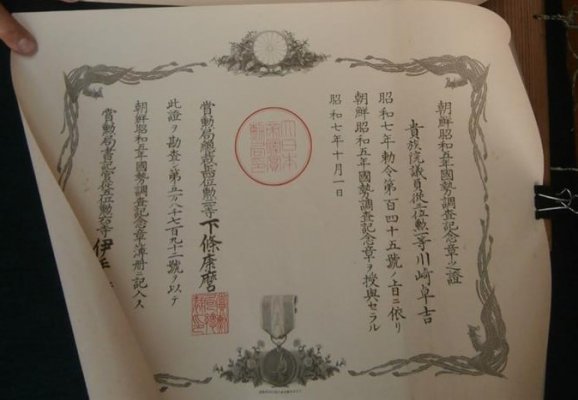 朝鮮昭和五年國勢調査記念章之證
貴族院議員從三位勲一等川崎卓吉
昭和七年勅令第百四十五號ノ旨ニ依リ
朝鮮昭和五年國勢調査記念章ヲ授與セラル
昭和七年十月一日
賞勲局總裁 下條康麿
此證ヲ勘査シ第五八七百九十二號ヲ以テ
朝鮮昭和五年國勢調査記念章簿册ニ記入ス
賞勲局書記官從五位勲六等伊